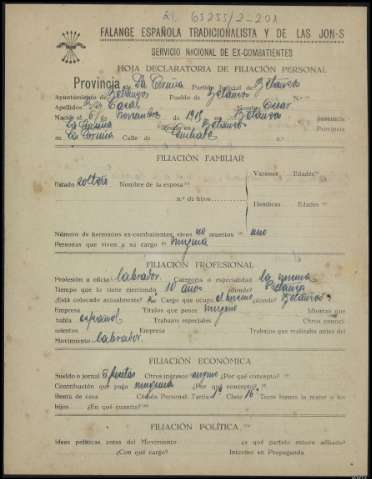 FALANGE ESPAÑOLA TRADICIONALISTA Y DE LAS JON-S
SERVICIO NACIONAL DE EX-COMBATIENTES
HOJA DECLARATORIA DE FILIACIÓN PERSONAL
Provincia de La Coruña Partido Judicial de Betanzos
Ayuntamiento de Betanzos Pueblo de Betanzos N.º
Apellidos Nombre Cesar
Nació el de noviembre de Betanzos Provincia
La Coruña Betanzos Provincia
La Coruña Calle de
FILIACIÓN FAMILIAR
Varones Edades
Estado soltero Nombre de la esposa
n.º de hijos
Hembras Edades
Número de hermanos ex-combatientes vivos no muertos uno
Personas que viven a su cargo ninguna
FILIACIÓN PROFESIONAL
Profesión u oficio labrador Categoría o especialidad la misma
Tiempo que la tiene ejerciendo 10 años ¿dónde? Betanzos
¿Está colocado actualmente? Cargo que ocupa el mismo ¿dónde? Betanzos
Empresa Títulos que posee ninguno Idiomas que
habla español Trabajos especiales Otros conoci-
mientos Empresa Trabajos que realizaba antes del
Movimiento labrador
FILIACIÓN ECONÓMICA
Sueldo o jornal 5 Pesetas Otros ingresos ninguno ¿Por qué concepto?
Contribución que paga ninguna ¿Por qué concepto?
Renta de casa Cédula Personal Tarifa Clase Tiene bienes la mujer o los
hijos ¿En qué cuantía?
FILIACIÓN POLÍTICA
Ideas políticas antes del Movimiento ¿a qué partido estuvo afiliado?
¿Con qué cargo? Intervino en Propaganda